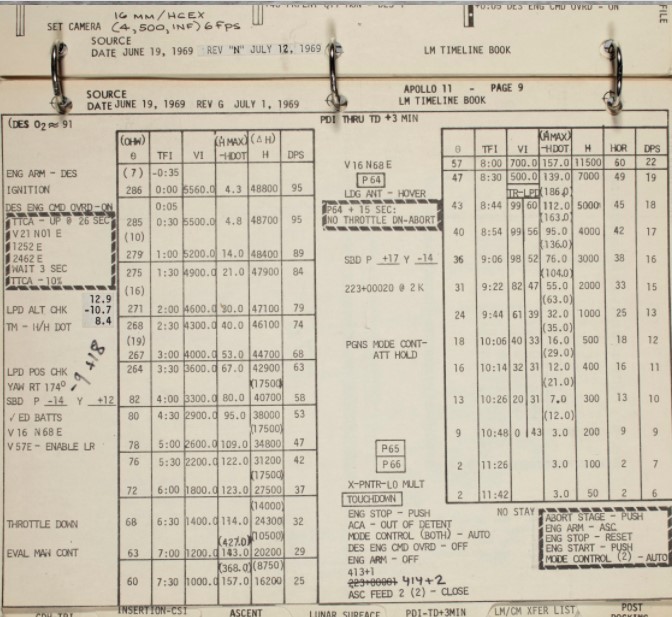 16 MM/HCEX
SET CAMERA (4,500,INF) 6 FPS
SOURCE
DATE JUNE 19, 1969 REV "N" JULY 12, 1969
LM TIMELINE BOOK
+0:05 DES ENG CMD OVRD - ON
FILE
SOURCE
DATE JUNE 19, 1969 REV G JULY 1, 1969
APOLLO 11 - PAGE 9
LM TIMELINE BOOK
(DES O2 ≈ 91
PDI THRU TD +3 MIN
(OHW) (Ḣ MAX) (Δ H)
θ TFI VI -HDOT H DPS
ENG ARM - DES (7) -0:35
IGNITION 286 0:00 5560.0 4.3 48800 95
DES ENG CMD OVRD-ON 0:05
TTCA - UP @ 26 SEC 285 0:30 5500.0 4.8 48700 95
V21 N01 E (10)
1252 E 279 1:00 5200.0 14.0 48400 89
2462 E
WAIT 3 SEC 275 1:30 4900.0 21.0 47900 84
TTCA - 10% (16)
12.9
LPD ALT CHK -10.7 271 2:00 4600.0 30.0 47100 79
TM - H/H DOT 8.4 268 2:30 4300.0 40.0 46100 74
(19)
267 3:00 4000.0 53.0 44700 68
-9 +18
LPD POS CHK 264 3:30 3600.0 67.0 42900 63
YAW RT 174° (17500)
SBD P -14 Y +12 82 4:00 3300.0 80.0 40700 58
✓ ED BATTS 80 4:30 2900.0 95.0 38000 53
V 16 N 68 E (17500)
V 57E - ENABLE LR 78 5:00 2600.0 109.0 34800 47
76 5:30 2200.0 122.0 31200 42
(17500)
72 6:00 1800.0 123.0 27500 37
(14000)
THROTTLE DOWN 68 6:30 1400.0 114.0 24300 32
(427.0) (10500)
EVAL MAN CONT 63 7:00 1200.0 143.0 20200 29
(368.0) (8750)
60 7:30 1000.0 157.0 16200 25
(Ḣ MAX)
θ TFI VI -HDOT H HOR DPS
V16 N68 E 57 8:00 700.0 157.0 11500 60 22
P64 47 8:30 500.0 139.0 7000 49 19
LDG ANT - HOVER TR-LPD (186.0)
P64 + 15 SEC: 43 8:44 99 60 112.0 5000 45 18
NO THROTTLE DN-ABORT (163.0)
40 8:54 99 56 95.0 4000 42 17
(136.0)
SBD P +17 Y -14 36 9:06 98 52 76.0 3000 38 16
(104.0)
223+00020 @ 2 K 31 9:22 82 47 55.0 2000 33 15
(63.0)
24 9:44 61 39 32.0 1000 25 13
(35.0)
PGNS MODE CONT- 18 10:06 40 33 16.0 500 18 12
ATT HOLD (29.0)
16 10:14 32 31 12.0 400 16 11
(21.0)
13 10:26 20 31 7.0 300 13 10
(12.0)
9 10:48 0 43 3.0 200 9 9
P65
P66 2 11:26 3.0 100 2 7
X-PNTR-LO MULT
TOUCHDOWN 2 11:42 3.0 50 2 6
ENG STOP - PUSH NO STAY
ACA - OUT OF DETENT
MODE CONTROL (BOTH) - AUTO
DES ENG CMD OVRD - OFF
ENG ARM - OFF
413+1
223+00001 414+2
ASC FEED 2 (2) - CLOSE
ABORT STAGE - PUSH
ENG ARM - ASC
ENG STOP - RESET
ENG START - PUSH
MODE CONTROL (2) - AUTO
INSERTION-CSI
ASCENT
LUNAR SURFACE
PDI-TD+3MIN
LM/CM XFER LIST
POST